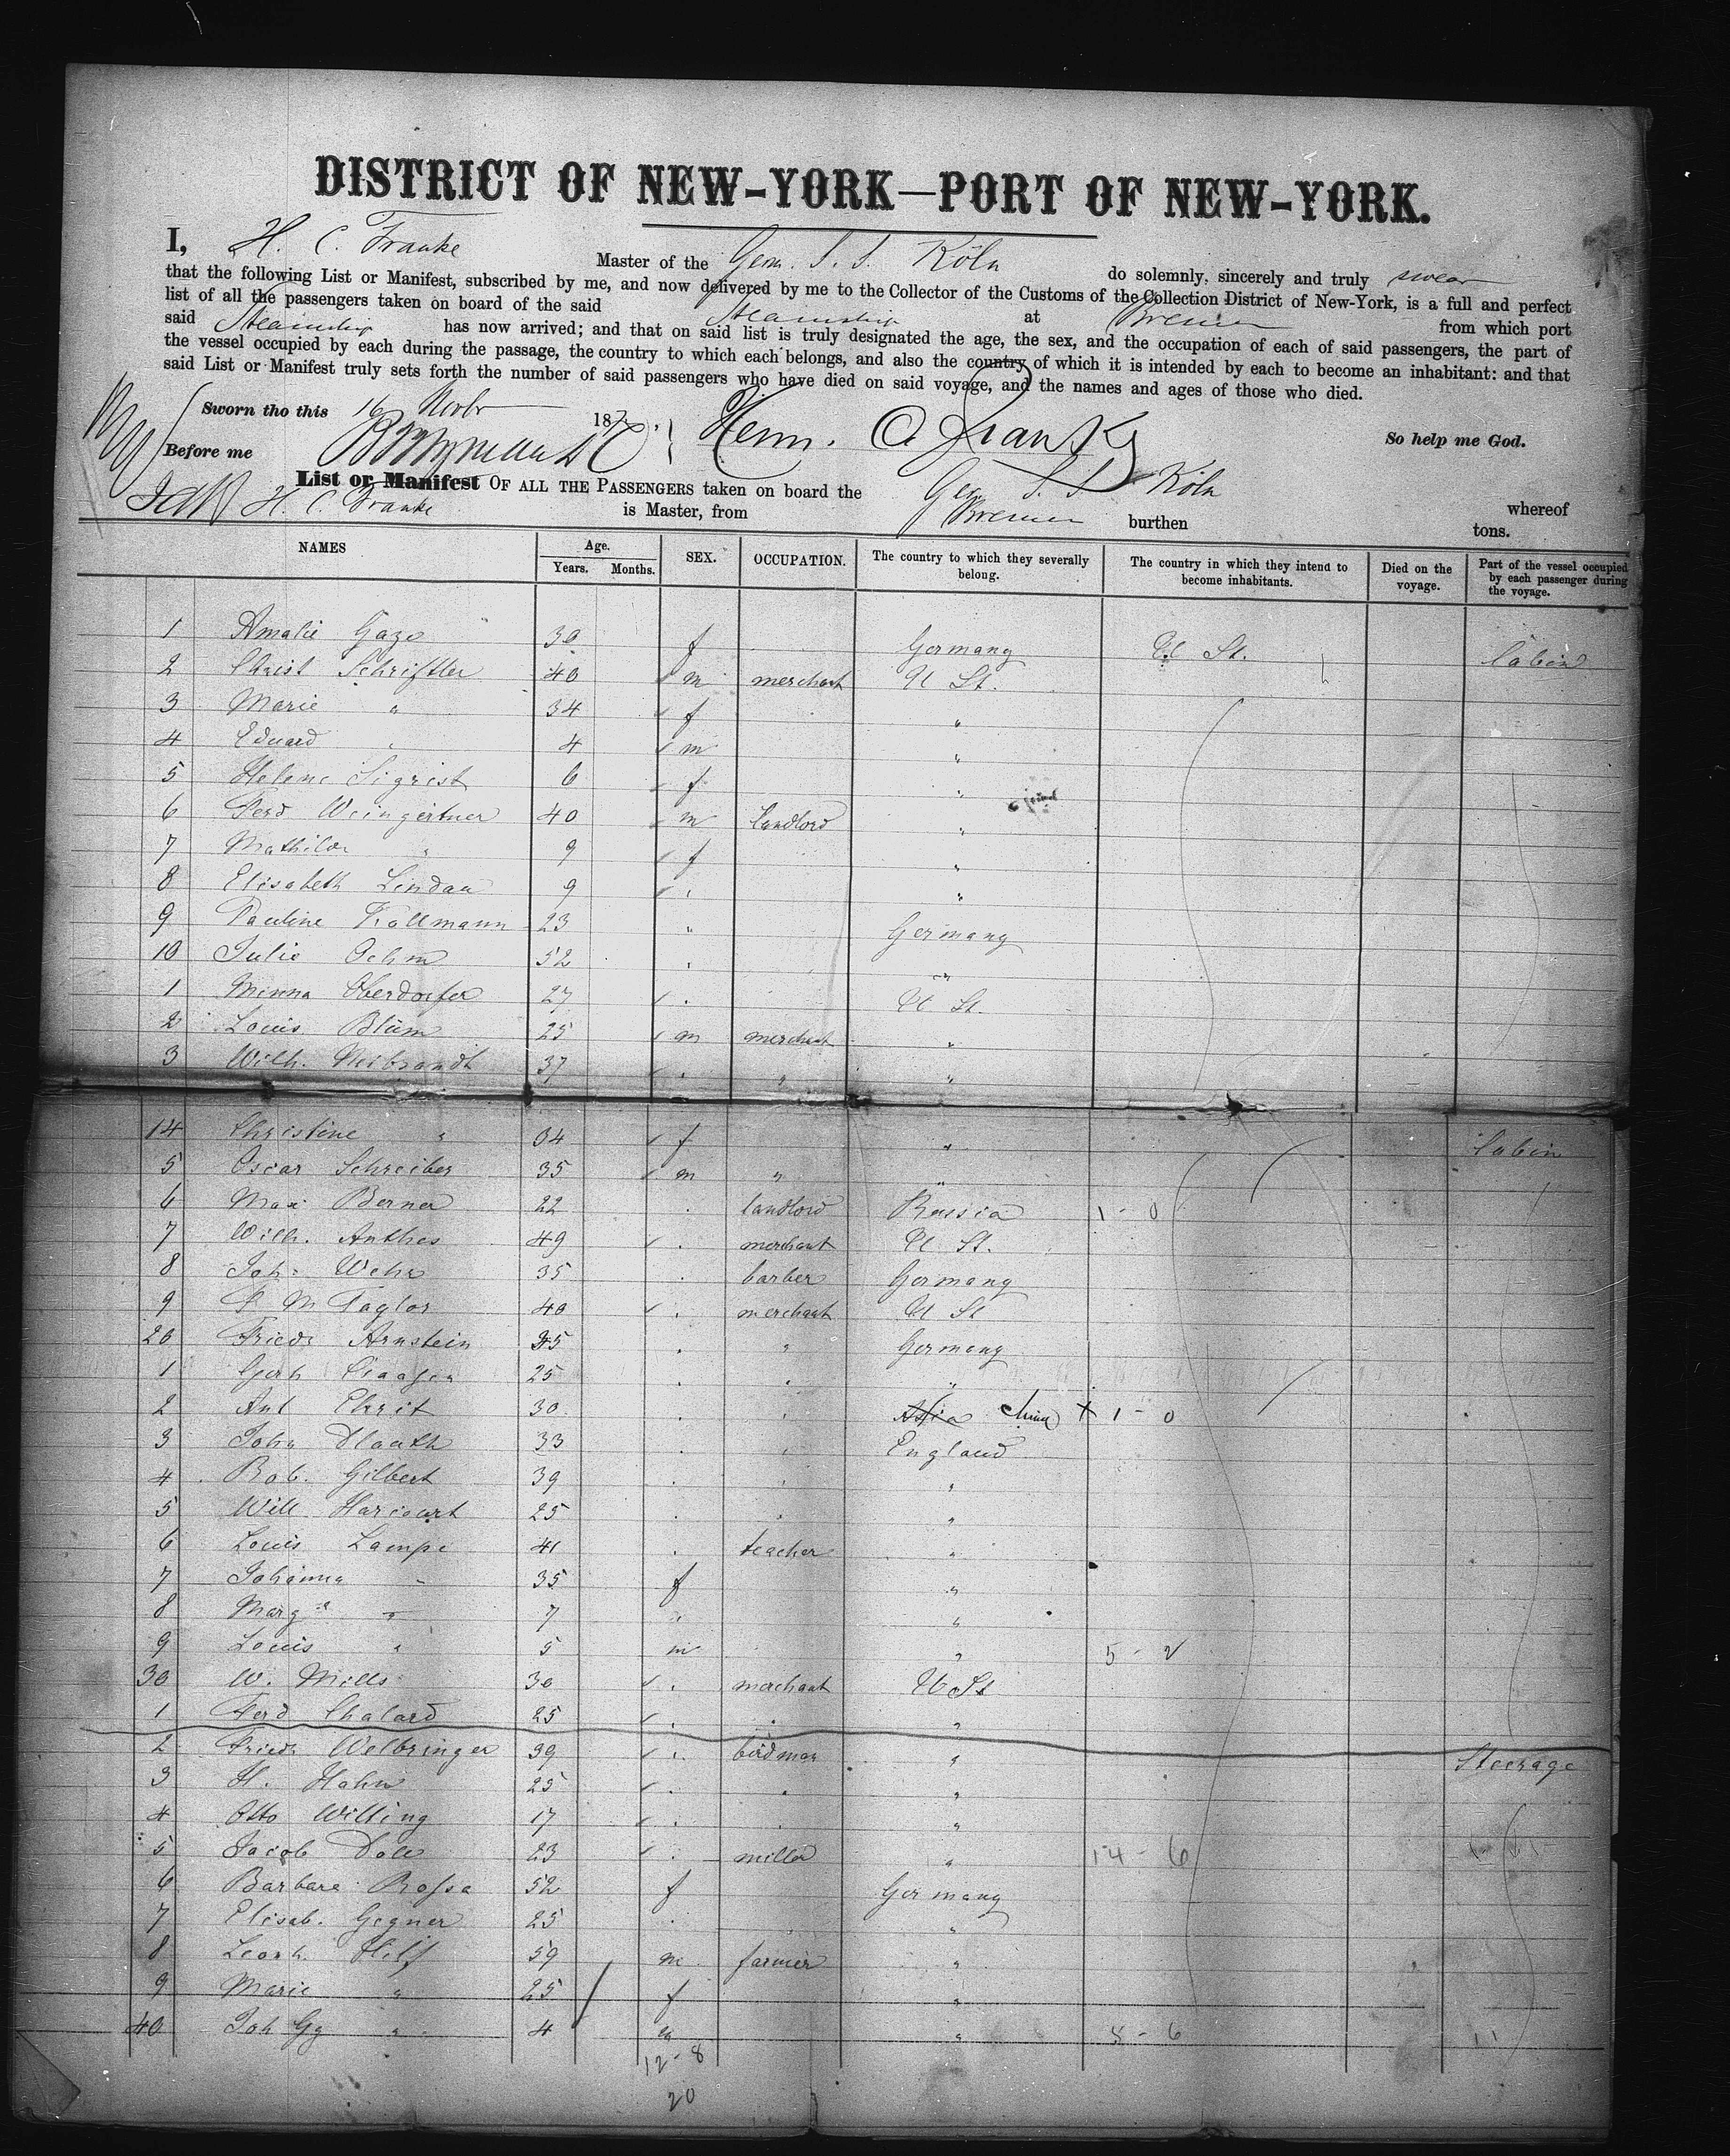 DISTRICT OF NEW-YORK—PORT OF NEW-YORK.
I, H. C. Franke Master of the Gem. S. S. Köln do solemnly, sincerely and truly swear
that the following List or Manifest, subscribed by me, and now delivered by me to the Collector of the Customs of the Collection District of New-York, is a full and perfect
list of all the passengers taken on board of the said Steamship at Bremen from which port
said Steamship has now arrived; and that on said list is truly designated the age, the sex, and the occupation of each of said passengers, the part of
the vessel occupied by each during the passage, the country to which each belongs, and also the country of which it is intended by each to become an inhabitant: and that
said List or Manifest truly sets forth the number of said passengers who have died on said voyage, and the names and ages of those who died.
Sworn tho this 16 Novbr 187 Henr. C. Franke So help me God.
Before me
List or Manifest OF ALL THE PASSENGERS taken on board the Gem S. S. Köln whereof
H. C. Franke is Master, from Bremen burthen tons.
NAMES Age. Years. Months. SEX. OCCUPATION. The country to which they severally belong. The country in which they intend to become inhabitants. Died on the voyage. Part of the vessel occupied by each passenger during the voyage.
1 Amalie Gaze 30 f Germany U St. Cabin
2 Christ Schriftler 40 m merchant U St.
3 Marie " 34 f "
4 Eduard " 4 m "
5 Helene Sigrist 6 f "
6 Ferd Weingertner 40 m landlord "
7 Mathilde " 9 f "
8 Elisabeth Lindau 9 " "
9 Pauline Kollmann 23 " Germany
10 Julie Oehm 52 " "
1 Minna Oberdorfer 27 " U St.
2 Louis Blüm 25 m merchant "
3 Wilh. Neibrandt 37 " " "
14 Christine " 34 f " Cabin
5 Oscar Schreiber 35 m " "
6 Max Berner 22 " landlord Russia 1 - 0
7 Wilh. Anthes 49 " merchant U St.
8 Joh. Wehr 35 " barber Germany
9 P M Taylor 40 " merchant U St
20 Friedr Arnstein 45 " " Germany
1 Gerh 25 " " "
2 Ant Christ 30 " " Asia China + 1 - 0
3 John 33 " " England
4 Rob. Gilbert 39 " " "
5 Will Harcourt 25 " " "
6 Louis Lampe 41 " teacher "
7 Johanna " 35 f "
8 Marg " 7 " "
9 Louis " 5 m " 5 - 2
30 W. Mills 30 " merchant U St
1 Ferd Chalard 25 " " "
2 Friedr Welbringer 39 " birdman " Steerage
3 H. Hahn 25 " " "
4 Otto Willing 17 " " "
5 Jacob Dole 23 " miller " 14 - 6
6 Barbara Rossa 52 f Germany
7 Elisab. Gegner 25 " "
8 Leonh. Hilf 59 m farmer "
9 Marie " 25 f "
40 Joh Gg " 4 m " 8 - 6
12 - 8
20